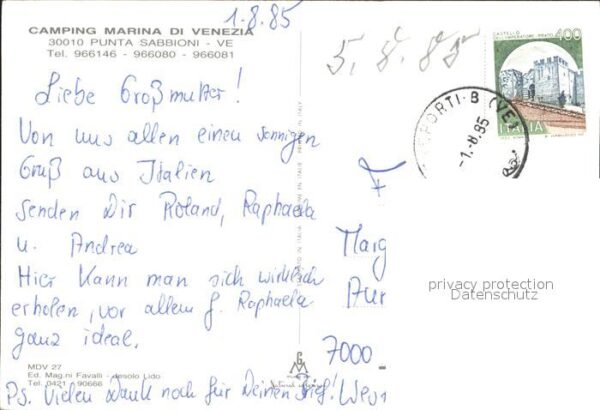 1.8.85
CAMPING MARINA DI VENEZIA
30010 PUNTA SABBIONI - VE
Tel. 966146 - 966080 - 966081
5. 8. 85
CASTELLO
DELL'IMPERATORE - PRATO
400
ITALIA
PORTI-B (VE)
-1.-8.85
Liebe Großmutter!
Von uns allen einen sonnigen
Gruß aus Italien
senden Dir Roland, Raphaela
u. Andrea
Hier kann man sich wirklich
erholen, vor allem f. Raphaela
ganz ideal.
F
Marg
Aur
7000
privacy protection
Datenschutz
MDV 27
Ed. Mag.ni Favalli - Jesolo Lido
Tel. 0421 - 90666
Ps. Vielen Dank noch für Deinen Brief!